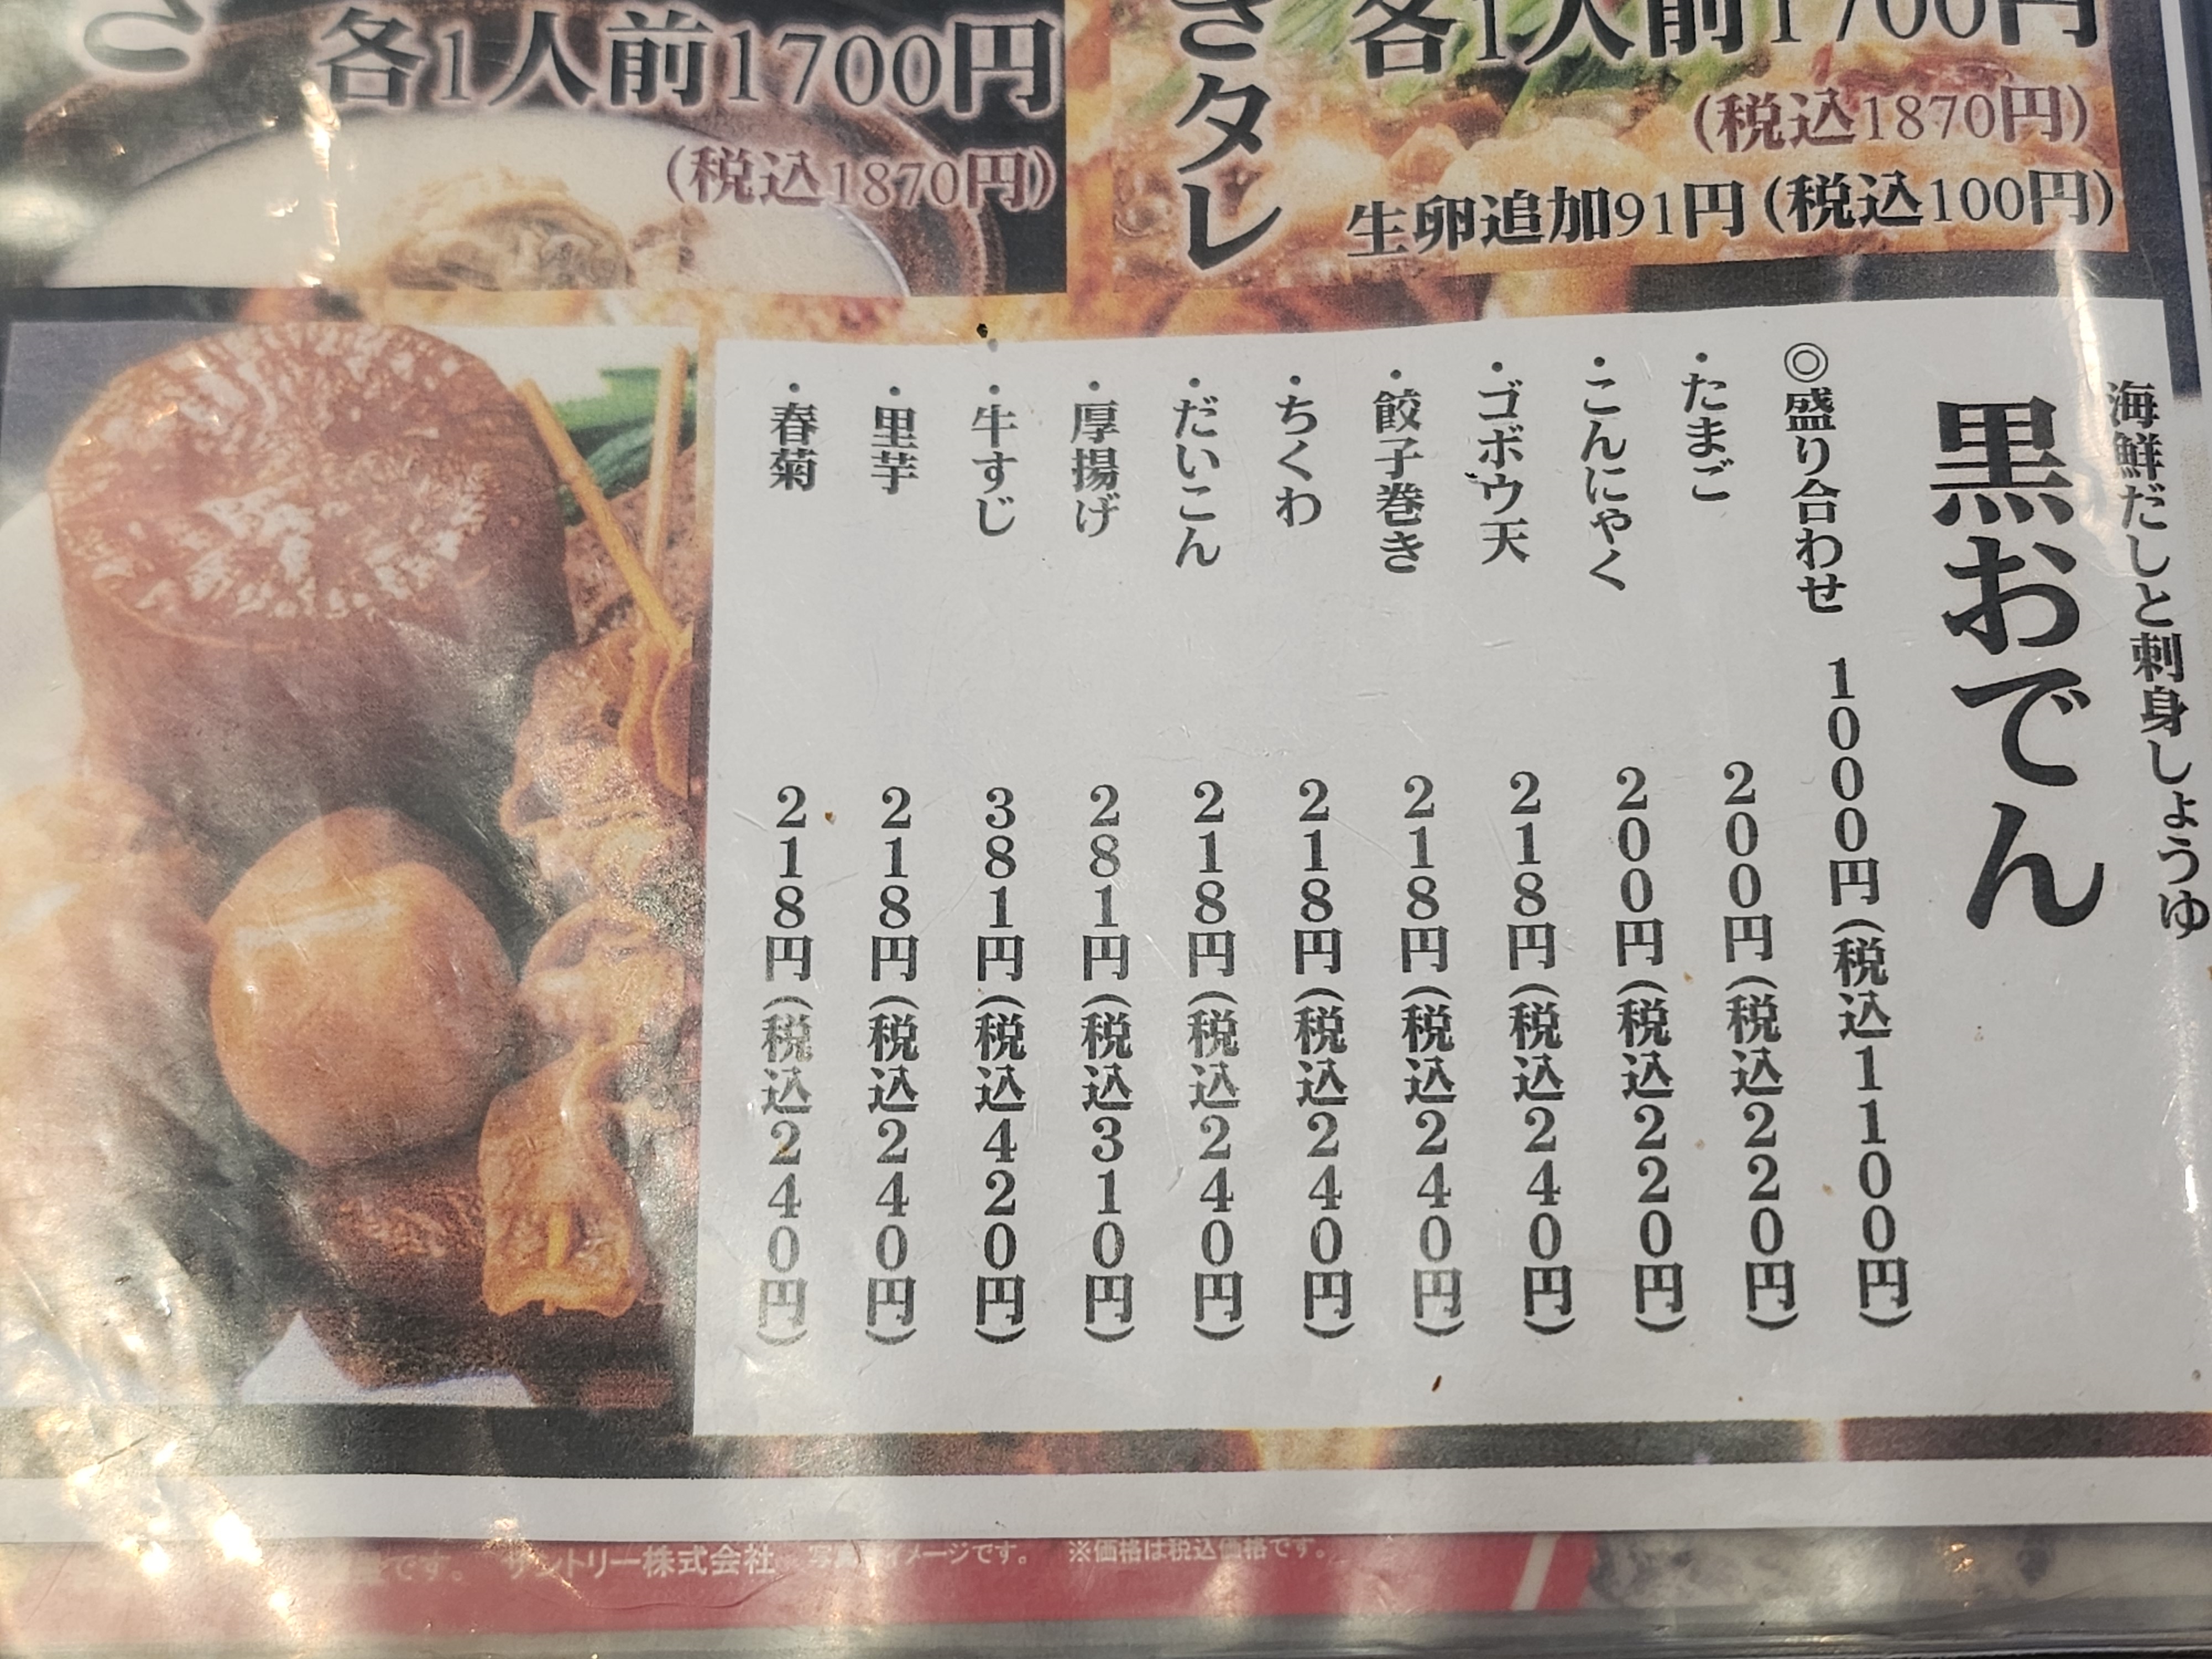 各1人前1700円
(税込1870円)
きタレ
各1人前1700円
(税込1870円)
生卵追加91円(税込100円)
海鮮だしと刺身しょうゆ
黒おでん
◎盛り合わせ 1000円(税込1100円)
・たまご 200円(税込220円)
・こんにゃく 200円(税込220円)
・ゴボウ天 218円(税込240円)
・餃子巻き 218円(税込240円)
・ちくわ 218円(税込240円)
・だいこん 218円(税込240円)
・厚揚げ 281円(税込310円)
・牛すじ 381円(税込420円)
・里芋 218円(税込240円)
・春菊 218円(税込240円)
です。 サントリー株式会社 写真はイメージです。 ※価格は税込価格です。